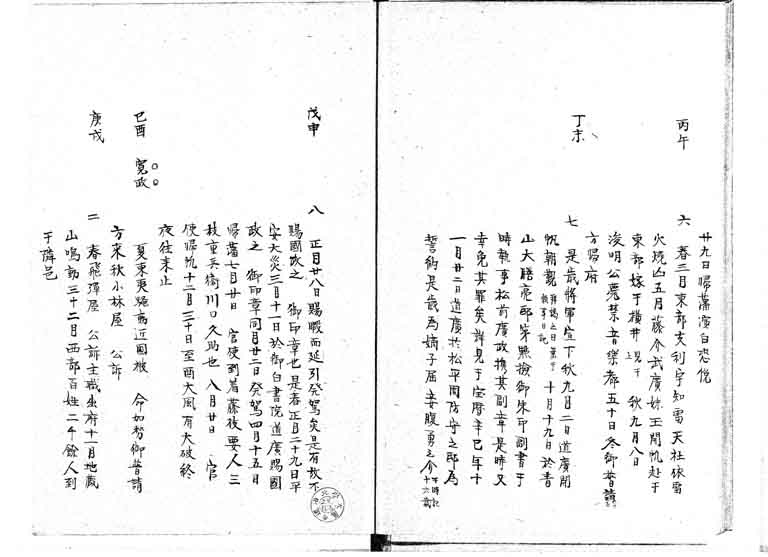 廿九日帰藩演白恐悦
丙午
六 春三月東部支利宇知雷天社依雷
火焼凶五月藤介武廣妹王開帆赴于
東都嫁于横井 見于 秋九月八日
浚明公薨禁音樂都五十日参御普請
方帰府
丁未
七 是歳将軍宣下秋九月二日道廣開
帆朝觀 拜謁之日 十月十九日於青
山大膳亮邸 點檢御朱印副書于
時執事松前廣政携其副章是時又
幸免其罪矣詳見于宝暦辛巳年十
一月廿二日道廣於松平周防守之邸為
誓約是歳為嫡子届妾腹勇之介 十六歳
戊申
八 正月廿八日賜暇而延引発駕矣是有故不
賜國政之 御印章也是春正月二十九日平
安大災三月十一日於御白書院道廣賜國
政之 御印章同月廿二日発駕四月十五日
帰藩七月廿日 官使到着藤枝要人三
枝重兵衛川口久助也 八月廿日 官
使帰帆十二月三十日至酉大風有大破終
夜往来止
己酉 寛政
夏東夷 高近國被 命如形御普請
方来秋小林屋 公訴
庚戌
二 春飛騨屋 公訴主職出府十一月地蔵
山鳴動三十二月西部百姓二千餘人到
于隣邑